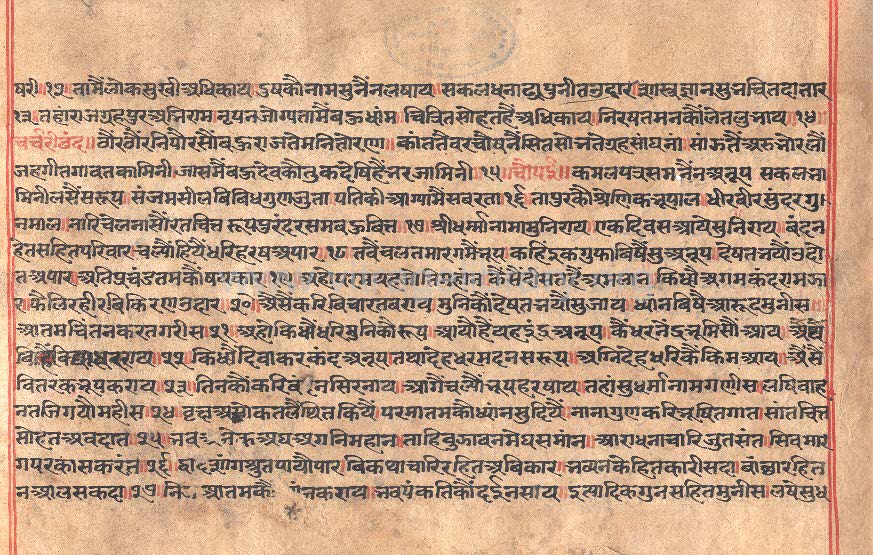 षरी ॥१२॥ तामैं लोक सुखी अधिकाय दुषकौ नाम सुनैं न लषाय सकल धनाढ्य पुनीत उदार शास्त्र ज्ञान सुन चित दातार
१३ तहां राजग्रह पुर अभिराम नृपन जोग्य तामैं बहु धांम चित्रित सोहत हैं अधिकाय निरषत मन कौं लेत लुभाय ॥१४॥
चर्चरी छंद ॥ वौर वौरनि पौर सौं बहु राजते मनि तोरण कांत
जहं गीत गावत कामिनी जा समैं बहु देव कौतुक देषि हैं नर जामिनी १५ चौपई कमल पत्र सम नैंन अनूप सकल ना
मिनी लसैं सरूप संजम सील बिबिध गुण जुता पति की आग्या मैं सब रता १६ ता पुर कौ श्रेणिक नृपाल धीर बीर सुंदर गु
नमाल नारि चेलना सौं रत चित्त रूप पुरंदर सम बहु बित्त १७ श्री धर्म्म नामा मुनिराय एक दिवस आये मुनिराय बंदन
हेत सहित परिवार चल्यौ हियैं धरि हरष अपार १८ तबैं चलत मारग मैं भूप कहिं इक गुफा बिषैं सु अनूप देषत भयौ उदो
त अपार अति प्रचंड तम कौं षयकार १९ अहो परम यह जोति महांन कैसैं दीसत है अमलान किधौं अगम कंद रा मजा
र फैलि रही रबि किरण उदार २० अैसैं करि बिचार तब राय मुनि कौं देषत भयौ सुभाय ध्यान बिषै आरूढ मुनीस
आतम चितन करत गरीस २१ अहो किधौं धरि मुनि कौ रूप आयौ है यह इंद्र अनूप कै धरनेंद्र भूमि सौं आय
राय २२ किधौं दिवाकर कंद अनूप तथा देह धर मदन सरूप अग्नि देह धरि कैं किम आय अैसैं
बितरक नृप कराय २३ तिन कौं करि सिर नाय आगैं चल्यौं नृप हरषाय तहां सुधर्मा नाम गणीस लषि बाह
न तजि गयौ महीस २४ वृच्छ असोक तलैं थिति कियैं परमातम कौ ध्यांन सु दियैं नाना गुण करि भूषित गात सांत चित्त
सोहत अवदात २५ अघ अगनि महान ता हि बुजावन मेघ समांन आराधना चारि जुत संत सिव मार
ग परकास करंत २६ द्वादशांग श्रुत पायौ पार बिकथा चारि रहित अबिकार भव्यन के हितकारी सदा बांछा रहित
न आलस कदा २७ आतम कौ राय भव्य पंकति कौं दाय इत्यादिक गुन सहित मुनीस लषे सुध